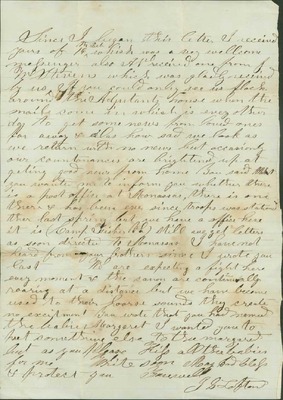 Since I began this letter I received
yours of which was a very wellcom
messenger also I received one from
McStevens which was gladly received
by us if you could only see us flock
around the Adjutants house when the
mail comes in which is every other
day with some news from loved ones
far away & alas how sad we look as
we return with no news but occasionly
our countinances are brightened up at
geting good news from home You said that
you wanted me to inform you whether there
is a post office at Manassas there is one
there it has been since troops was stationed
there last spring but we have a office here
it is Camp will get letters
as soon directed to Manassas I have not
heard from your brothers since I wrote you
last We are expecting a fight here
every moment the canons are continually
roaring at a distance but we have become
used to there hoarse sounds they create
no excitment You wrote that you had named
the babies Margaret I wanted you to
put something else to the margaret
but as you please Kiss all the babies
for me Write soon May God bless
& Protect you Farewell
J. J.